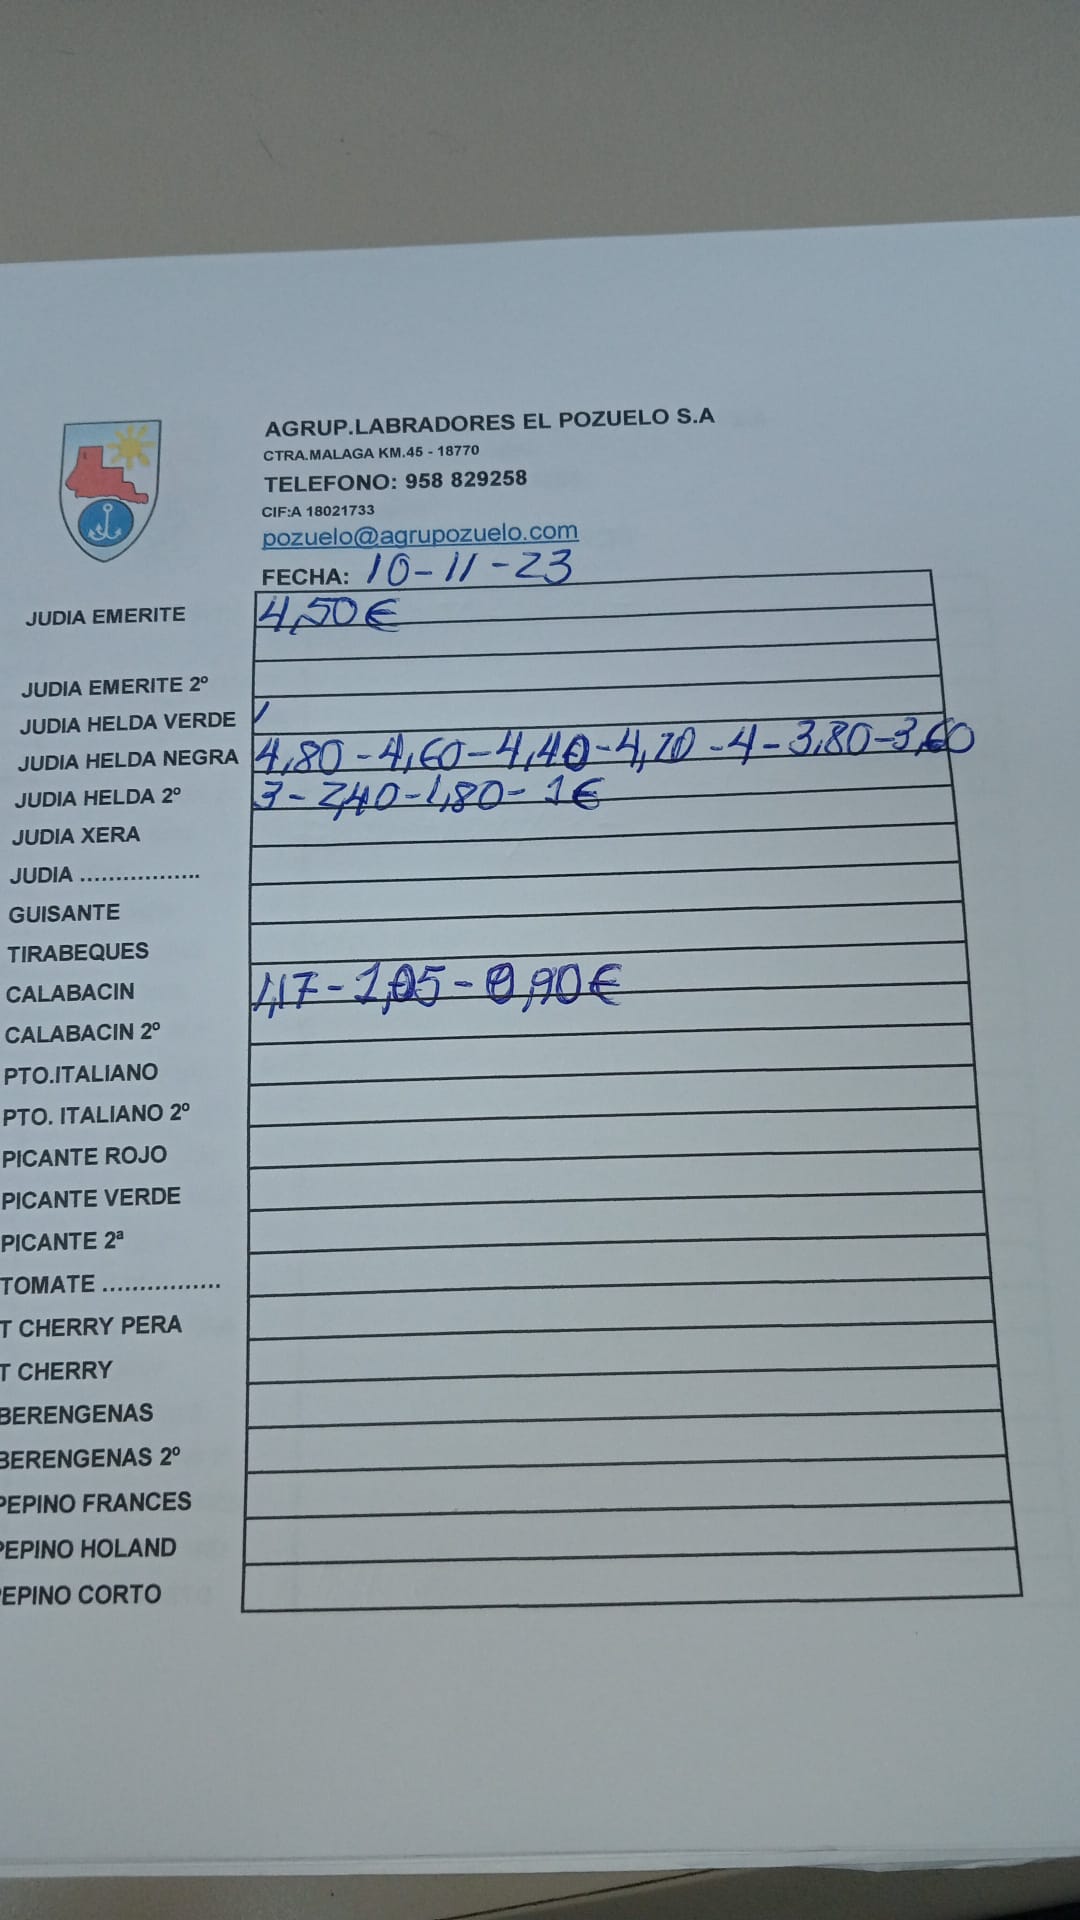 AGRUP.LABRADORES EL POZUELO S.A
CTRA.MALAGA KM.45 - 18770
TELEFONO: 958 829258
CIF:A 18021733
pozuelo@agrupozuelo.com
FECHA: 10-11-23
JUDIA EMERITE 4,50€
JUDIA EMERITE 2º
JUDIA HELDA VERDE
JUDIA HELDA NEGRA 4,80-4,60-4,40-4,20-4-3,80-3,60
JUDIA HELDA 2º 3-2,40-1,80-1€
JUDIA XERA
JUDIA .................
GUISANTE
TIRABEQUES
CALABACIN 1,17-1,05-0,90€
CALABACIN 2º
PTO.ITALIANO
PTO. ITALIANO 2º
PICANTE ROJO
PICANTE VERDE
PICANTE 2ª
TOMATE ................
T CHERRY PERA
T CHERRY
BERENGENAS
BERENGENAS 2º
PEPINO FRANCES
PEPINO HOLAND
PEPINO CORTO